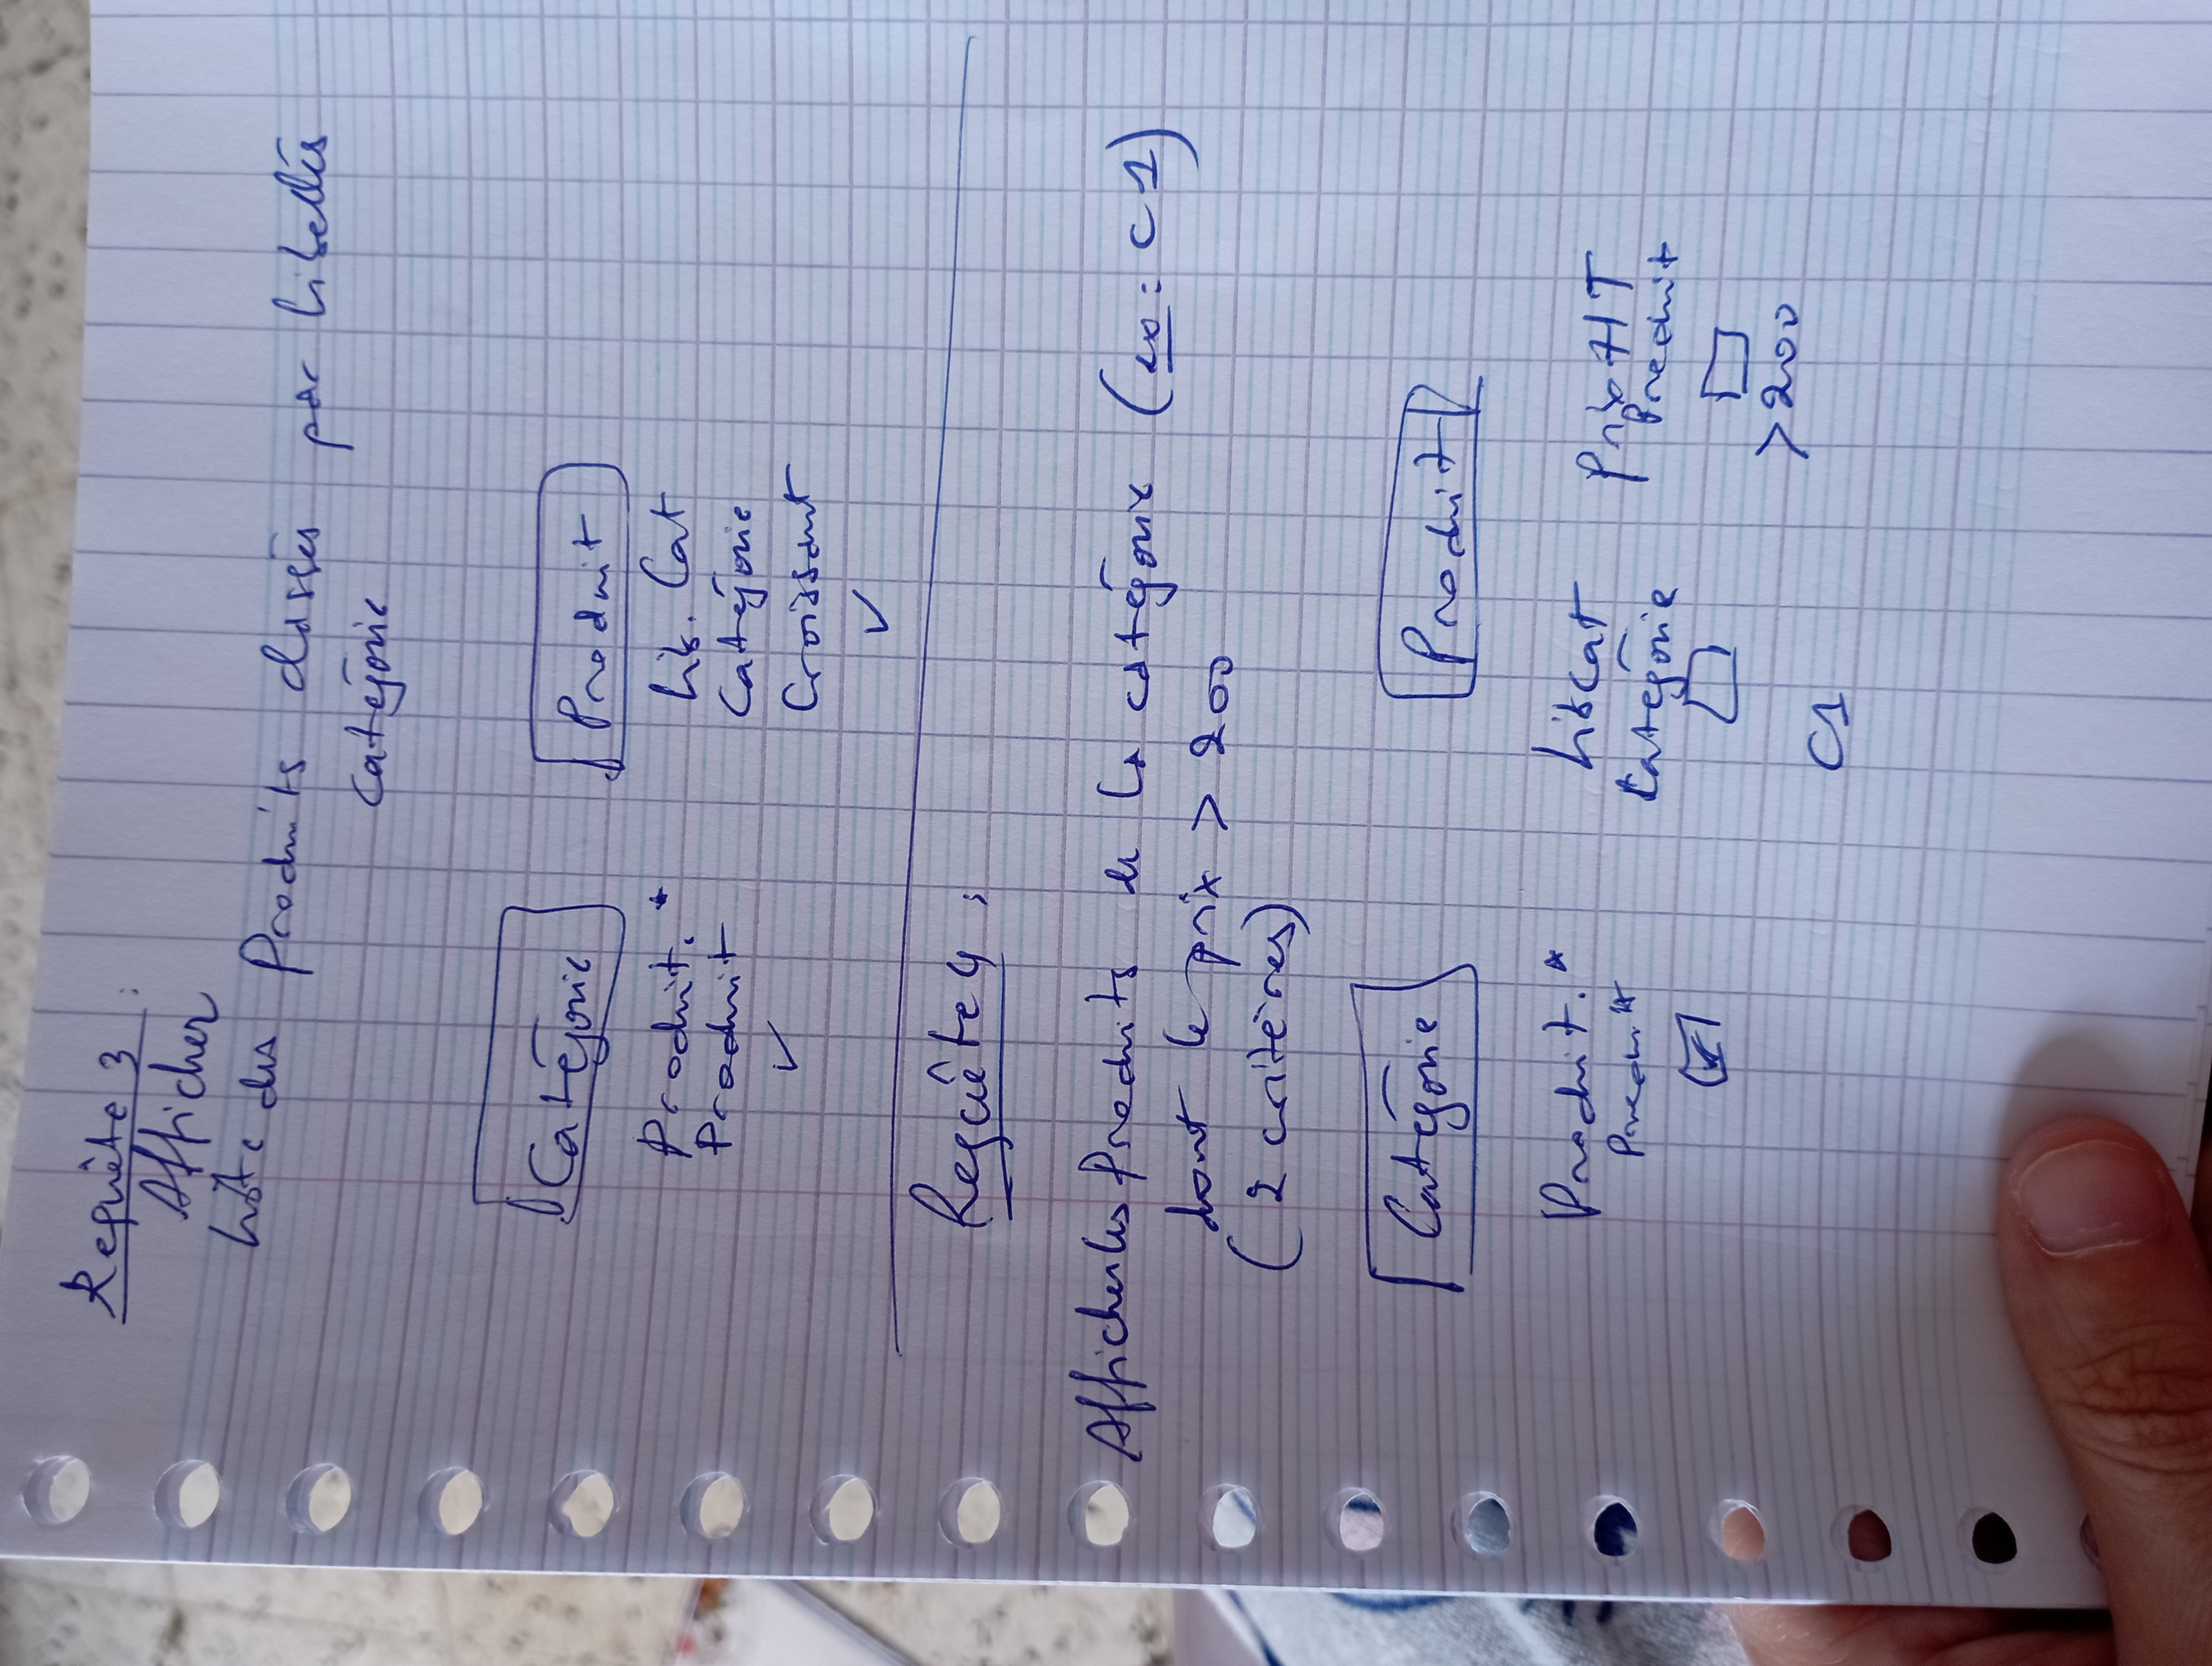 Requête 3 :
Afficher
Liste des Produits classés par Libellés
Catégorie
Catégorie
Produit
Produit.*
Produit
✓
Lib. Cat
Catégorie
Croissant
✓
Requête 4 :
Afficher les Produits de la catégorie (ex : C1)
dont le prix > 200
(2 critères)
Catégorie
Produit
Produit.*
Produit
LibCat
Catégorie
Prix HT
Produit
> 200
C1